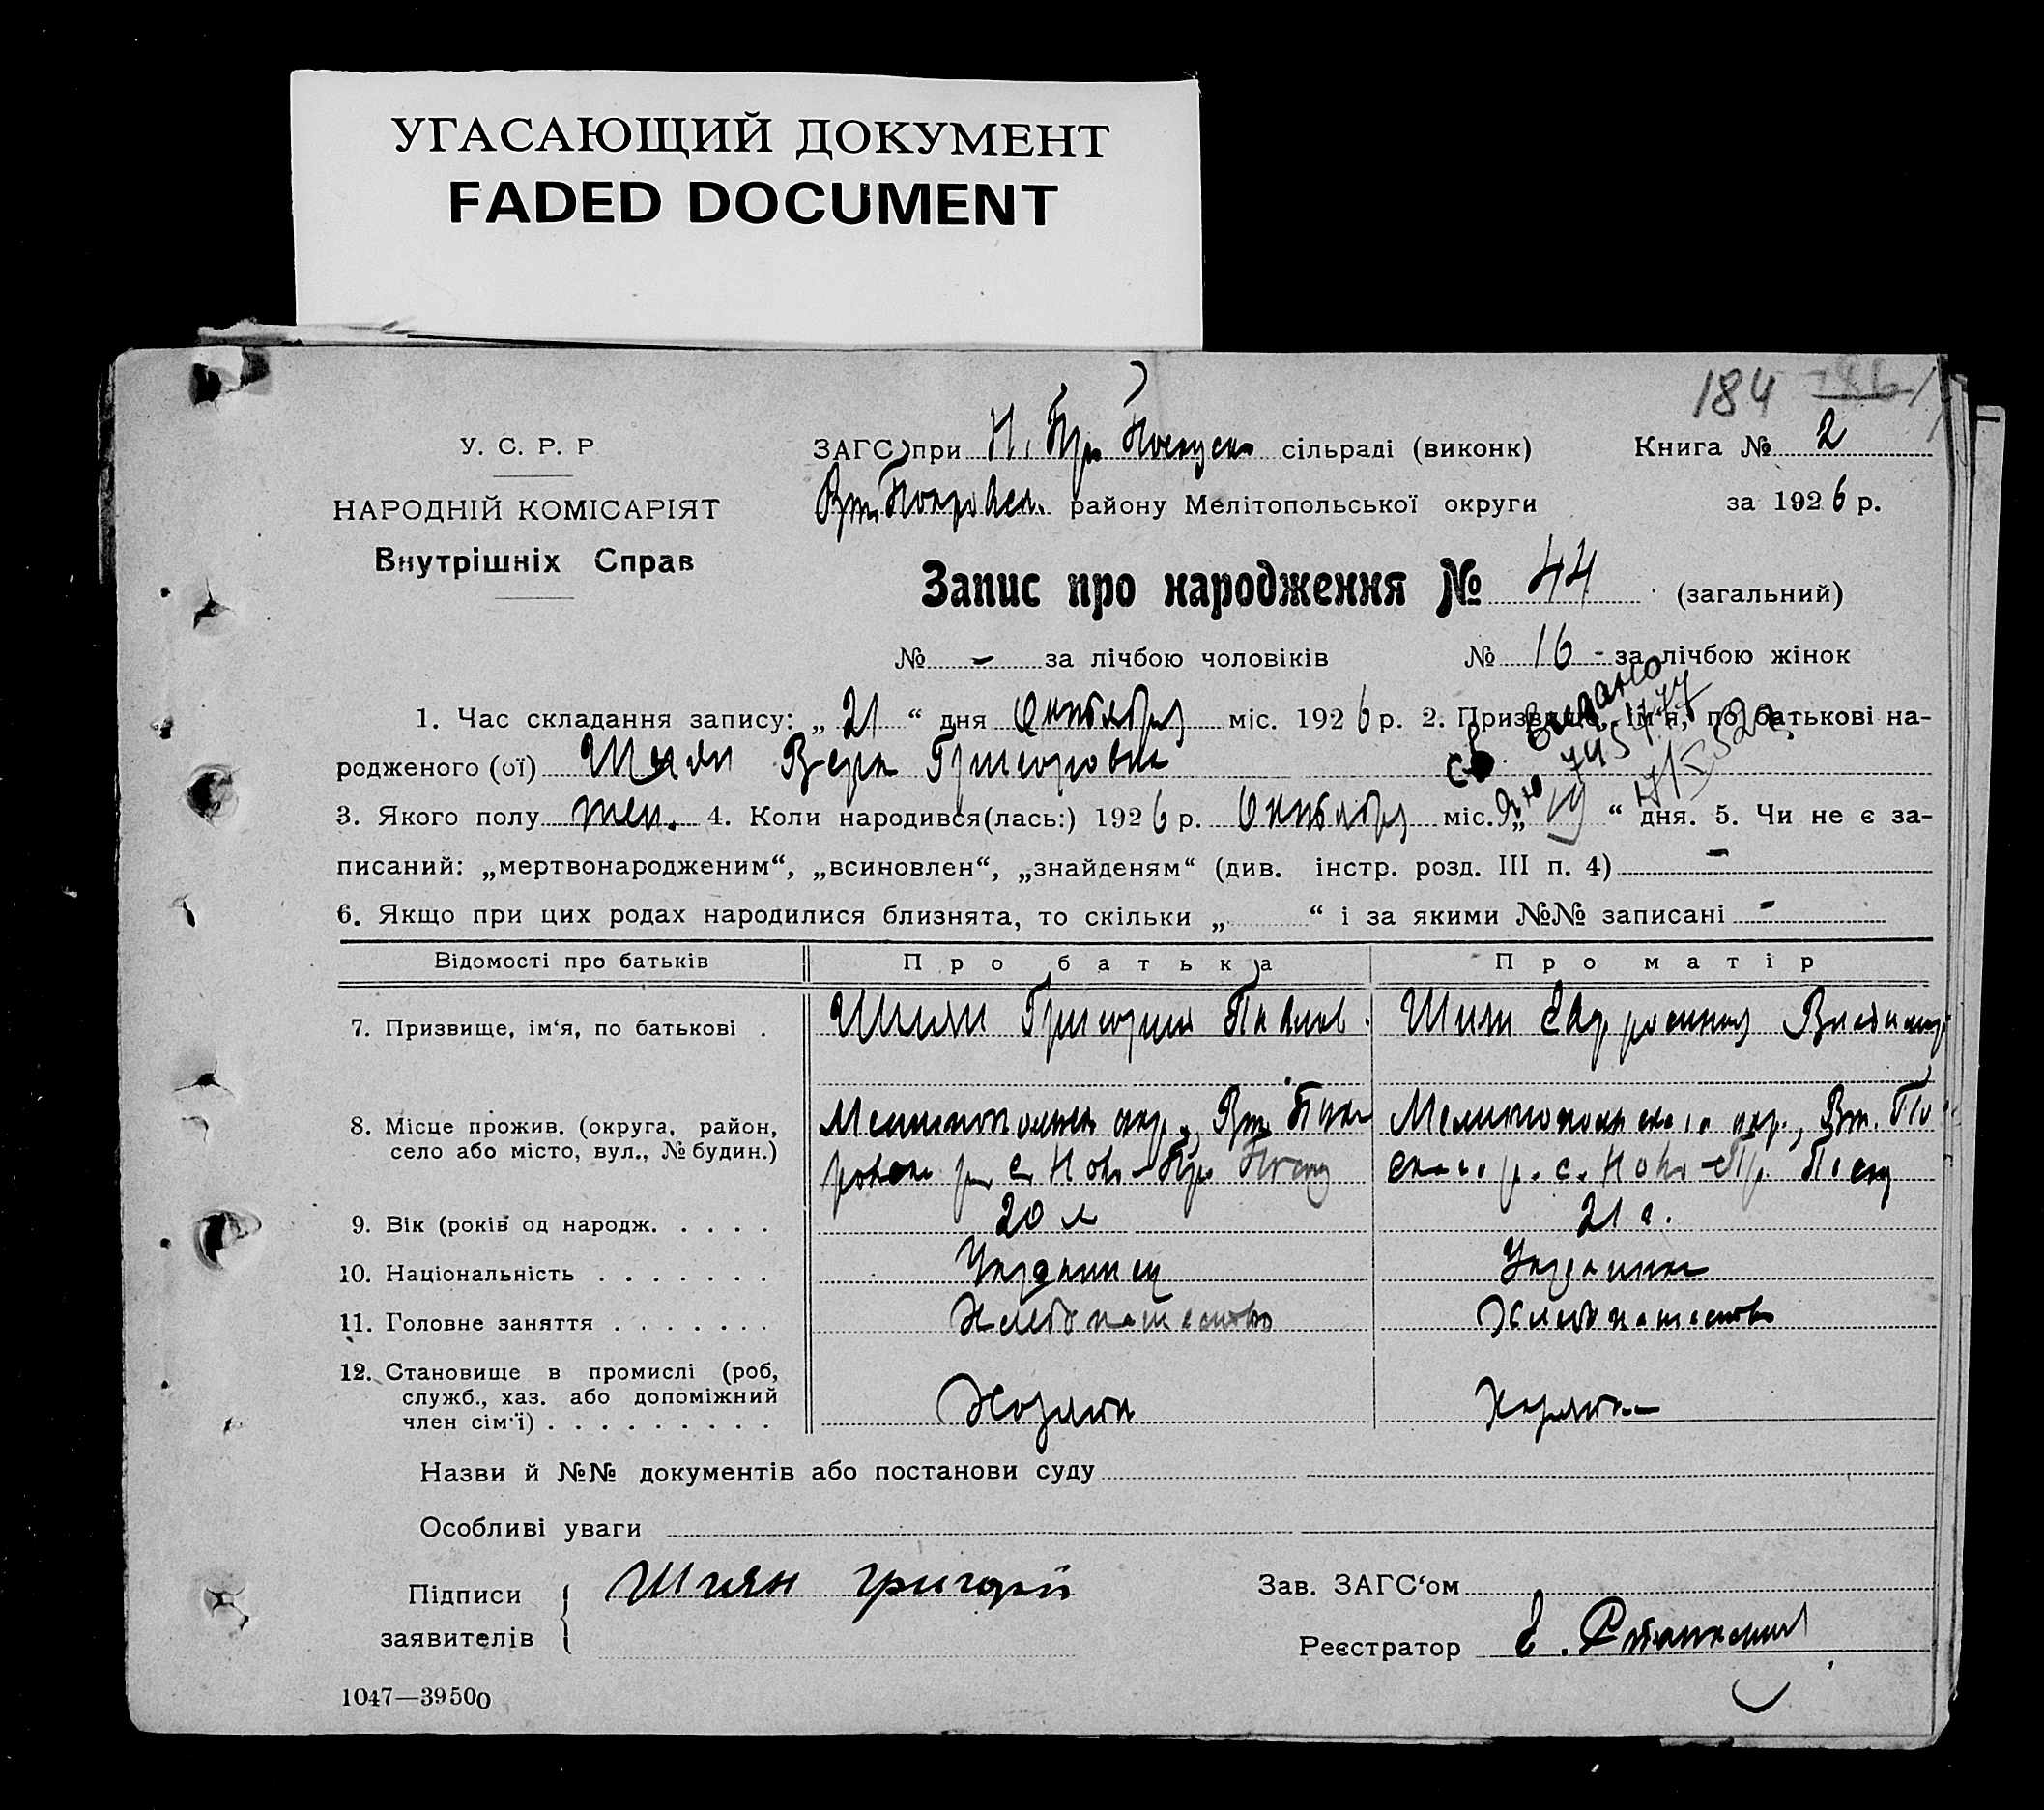 УГАСАЮЩИЙ ДОКУМЕНТ
FADED DOCUMENT
184
У. С. Р. Р
ЗАГС при Н. сільраді (виконк)
Книга № 2
НАРОДНІЙ КОМІСАРІЯТ
району Мелітопольської округи
за 1926 р.
Внутрішніх Справ
Запис про народження № 44 (загальний)
№ - за лічбою чоловіків
№ 16 - за лічбою жінок
1. Час складання запису: „ 21 “ дня Октября міс. 1926 р. 2. Призвище, ім‘я, по батькові на-
родженого (ої) Шиян Вера Григоровна
3. Якого полу жен. 4. Коли народився(лась:) 1926 р. Октября міс. „ 19 “ дня. 5. Чи не є за-
писаний: „мертвонародженим“, „всиновлен“, „знайденям“ (див. інстр. розд. III п. 4) -
6. Якщо при цих родах народилися близнята, то скільки „ “ і за якими №№ записані -
Відомості про батьків
Про батька
Про матір
7. Призвище, ім‘я, по батькові .
Шиян Григорий Павлов.
Шиян
8. Місце прожив. (округа, район,
село або місто, вул., № будин.)
9. Вік (років од народж. . . . .
20 л
21 г.
10. Національність . . . . . . .
Украинец
Украинка
11. Головне заняття . . . . . . .
Хлебопашество
Хлебопашество
12. Становище в промислі (роб,
служб., хаз. або допоміжний
член сім‘ї) . . . . . . . . .
Хозяин
Хозяйка
Назви й №№ документів або постанови суду
Особливі уваги
Підписи
заявителів
Шиян григорій
Зав. ЗАГС‘ом
Реєстратор
1047—39500